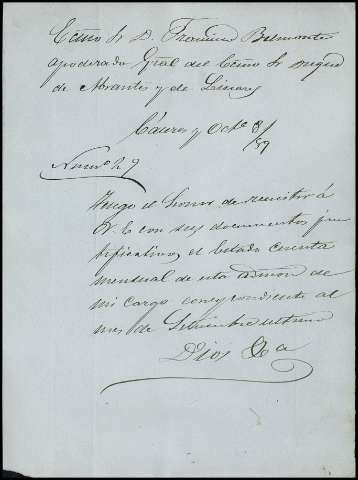 Ecmo Sr D. Francisco Belmonte
apoderado Gral del Ecmo Sr Duque
de Abrantes y de Linares
Cáceres y Octe 8/
/59
Numo 29
Tengo el honor de remitir á
V.E con sus documentos jus
tificativos, el Estado cuenta
mensual de esta admon de
mi cargo correspondiente al
mes de Setiembre ultimo
Dios &a